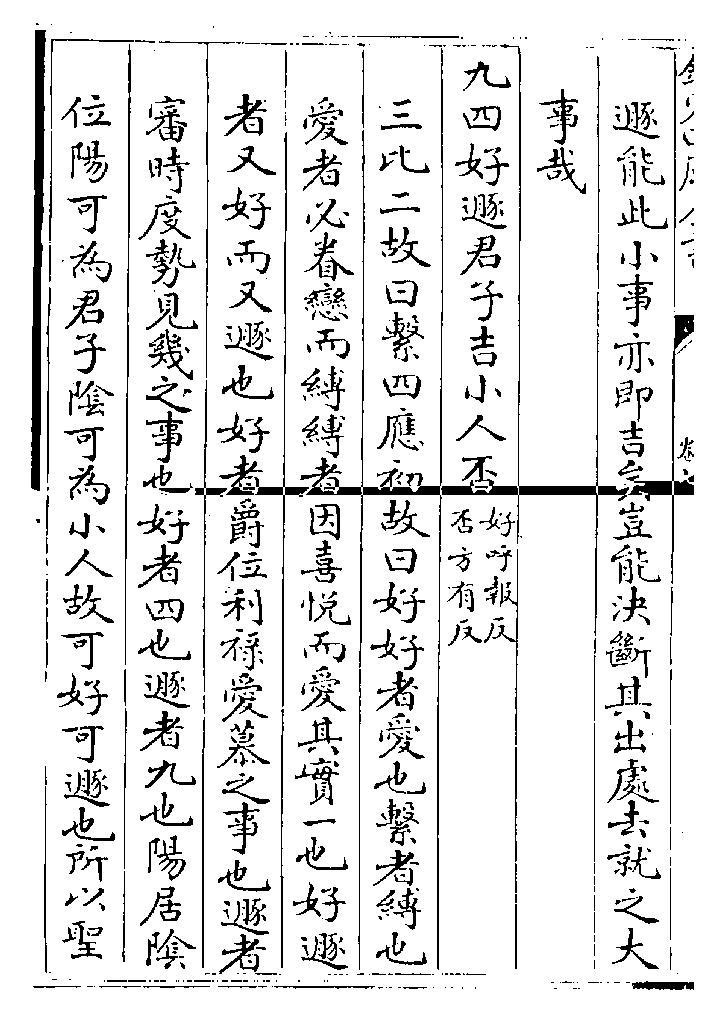 遯能此小事亦即吉矣豈能決斷其出處去就之大
事哉
九四好遯君子吉小人否好呼報反否方有反
三比二故曰繫四應初故曰好好者愛也繫者縛也
愛者必眷戀而縛縛者因喜悅而愛其實一也好遯
者又好而又遯也好者爵位利祿愛慕之事也遯者
審時度勢見幾之事也好者四也遯者九也陽居陰
位陽可為君子陰可為小人故可好可遯也所以聖